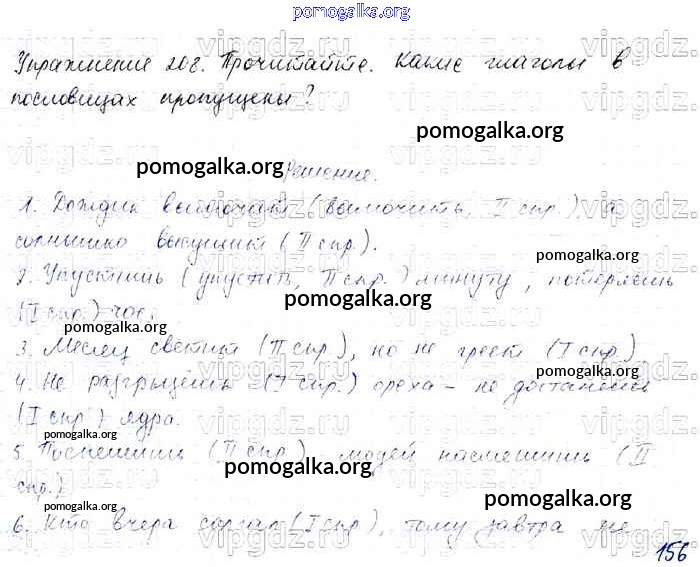 pomogalka.org
Упражнение 208. Прочитайте. Какие глаголы в
пословицах пропущены?
pomogalka.org
pomogalka.org
Решение.
1. Дождик вымочит (вымочить, II спр.), а
солнышко высушит (II спр.).
pomogalka.org
2. Упустишь (упустить, II спр.) минуту, потеряешь
pomogalka.org
(I спр.) час.
pomogalka.org
3. Месяц светит (II спр.), но не греет (I спр.)
pomogalka.org
4. Не разгрызёшь (I спр.) ореха – не достанешь
(I спр.) ядра.
pomogalka.org
5. Поспешишь (II спр.), людей насмешишь (II
pomogalka.org
спр.)
pomogalka.org
6. Кто вчера солгал (I спр.), тому завтра не
156